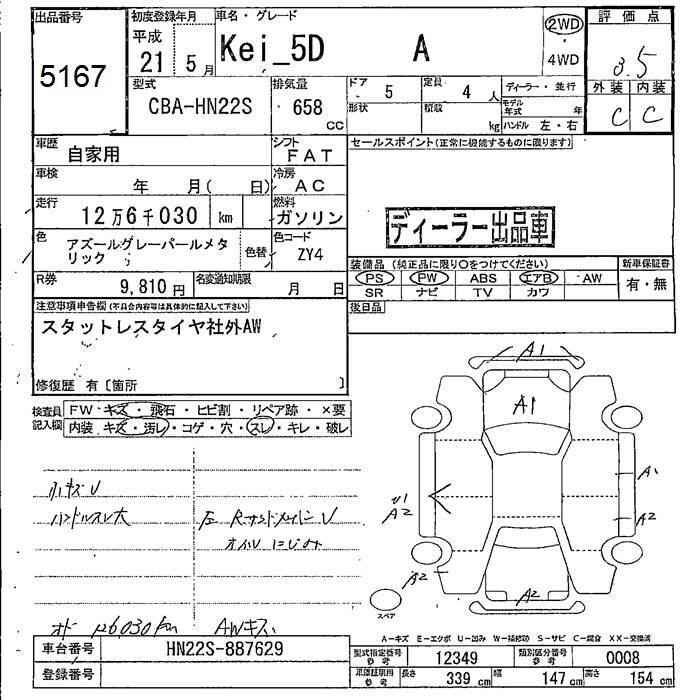 出品番号
5167
初度登録年月
平成
21 5月
車名・グレード
Kei_5D A
2WD
・
4WD
評価点
3.5
外装 内装
C C
型式
CBA-HN22S
排気量
658
CC
ドア
5
定員
4 人
ディーラー・並行
形状
積載
kg
モデル年式
年
ハンドル 左・右
車歴
自家用
シフト
FAT
セールスポイント(正常に機能するものに限ります)
車検
年 月( 日)
冷房
AC
走行
12万6千030 km
燃料
ガソリン
ディーラー出品車
色
アズールグレーパールメタ
リック
色替
色コード
ZY4
R券
9,810円
名変通知期限
月 日
装備品(純正品に限り〇をつけてください)
新車保証書
PS PW ABS エアB AW
SR ナビ TV カワ
有・無
後日品
注意事項申告欄(不具合内容等は具体的に記入して下さい)
スタットレスタイヤ社外AW
修復歴 有〔箇所 〕
検査員
記入欄
FW・キズ・飛石・ヒビ割・リペア跡・×要
内装・キズ・汚レ・コゲ・穴・スレ・キレ・破レ
小キズU
ハンドルスレ大
左Rサイドメンバー U
オイルにじみ
オド 126030km AWキズ
A1
A1
A1
A2
U1
A2
A2
A2
スペア
A-キズ E-エクボ U-凹み W-補修跡 S-サビ C-腐食 XX-交換済
車台番号
HN22S-887629
登録番号
型式指定番号
参考
12349
類別区分番号
参考
0008
車検証明用
参考
長さ
339 cm
幅
147 cm
高さ
154 cm